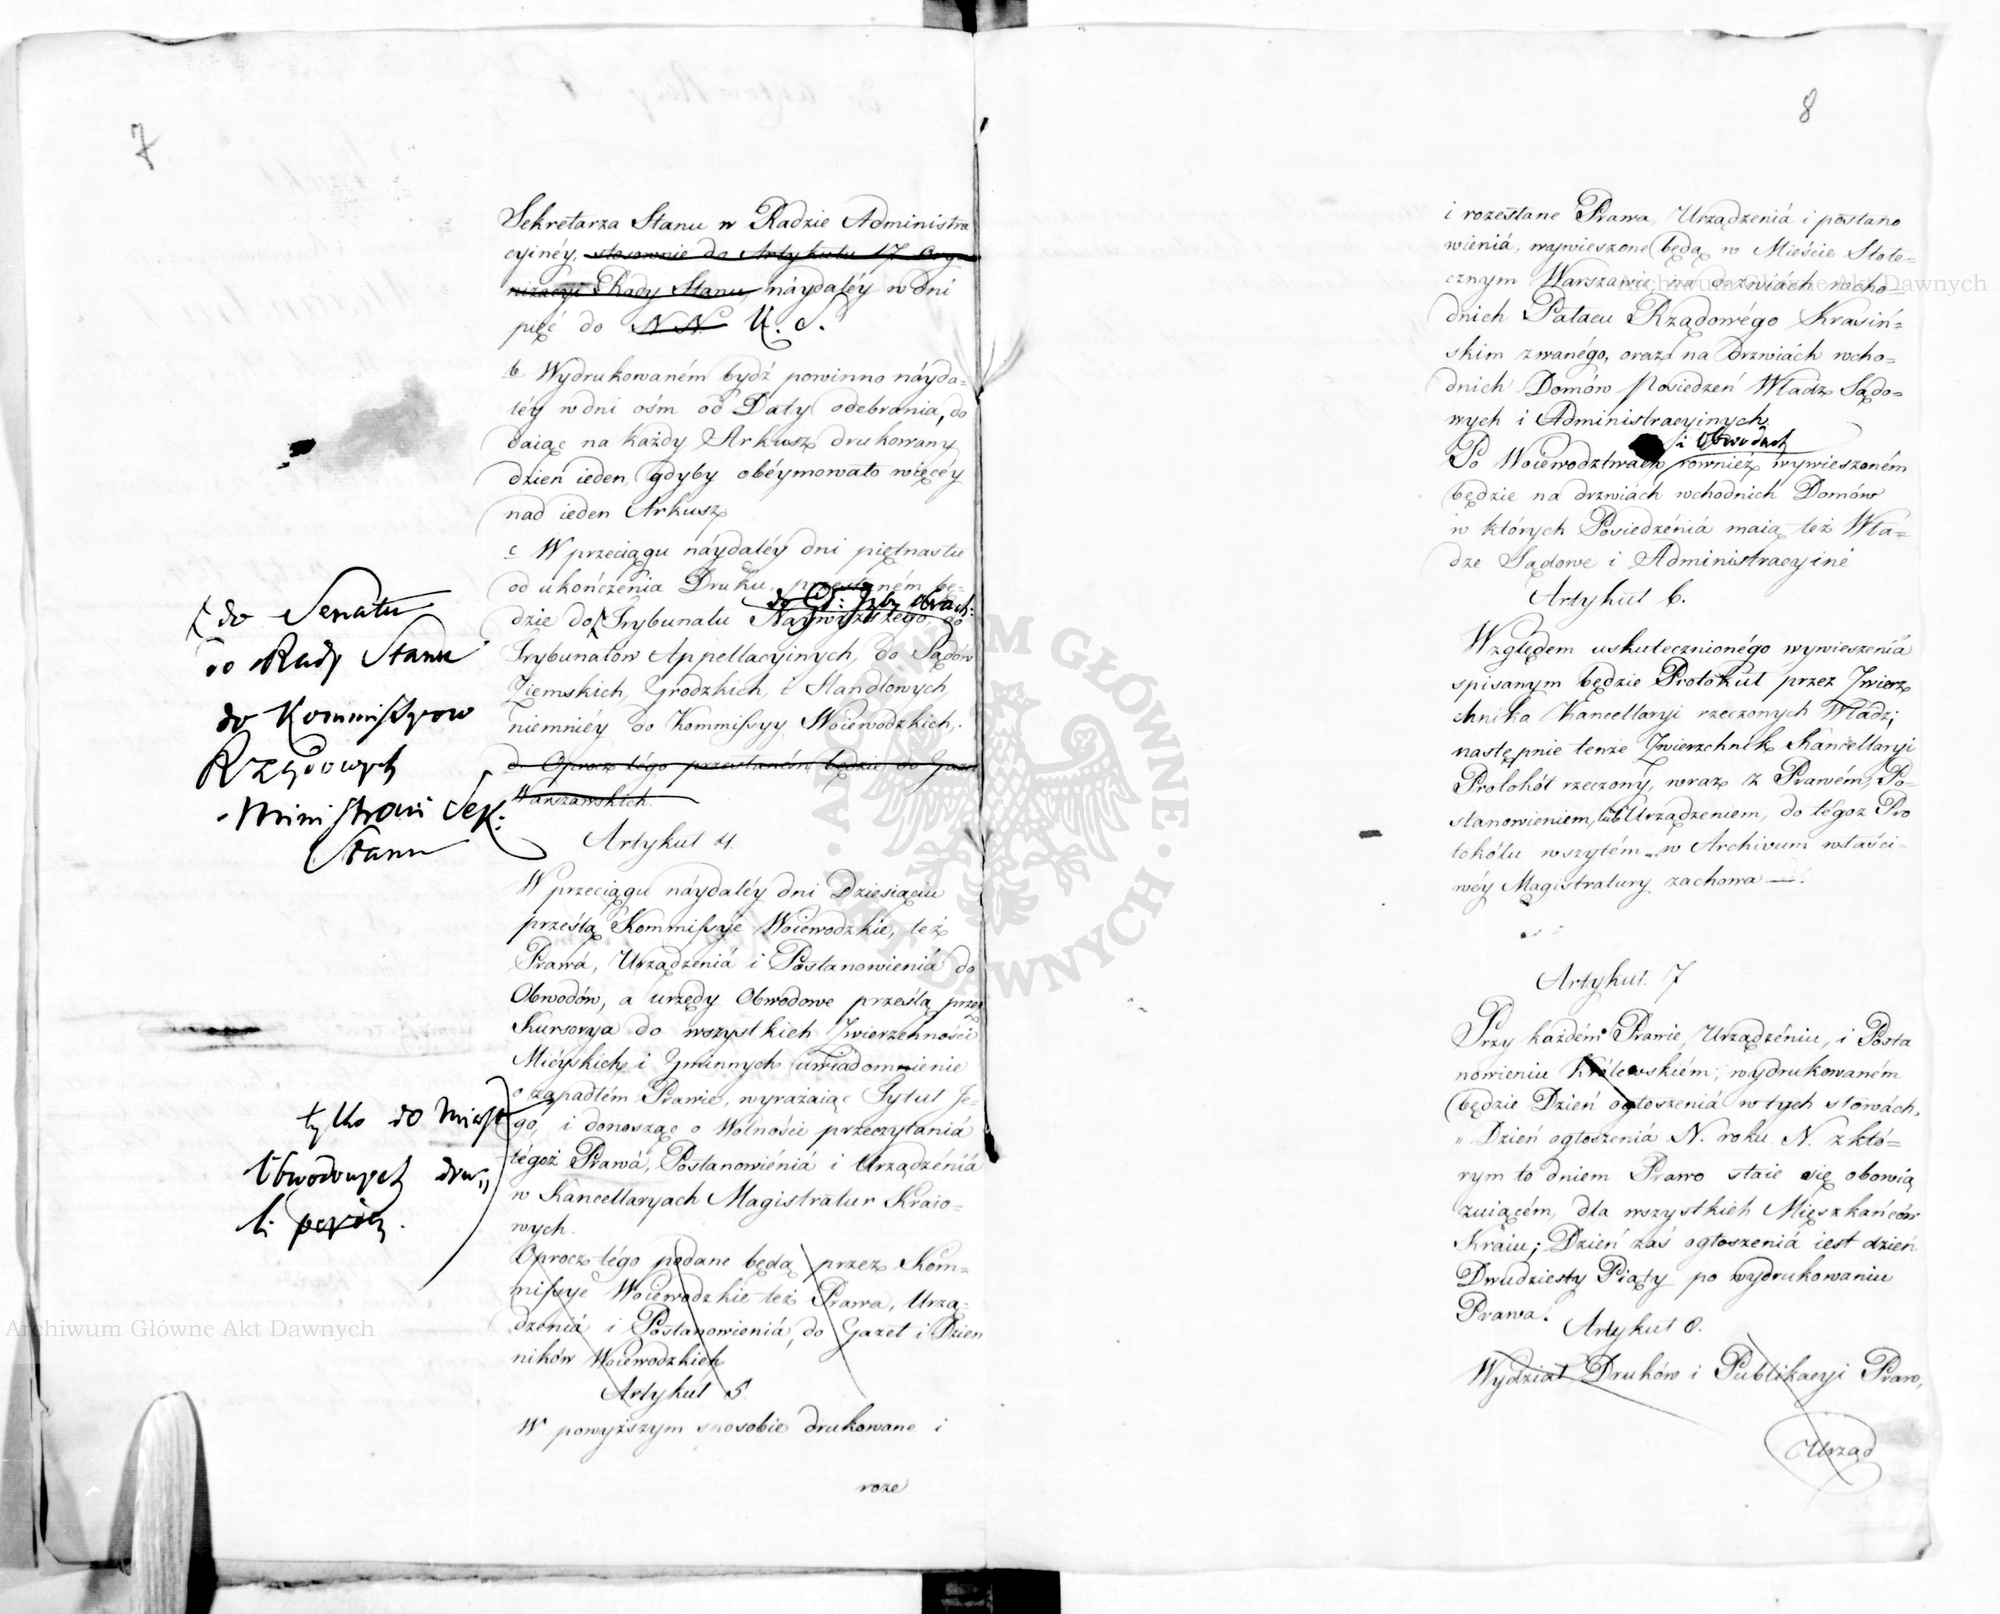 7
Sekretarza Stanu w Radzie Administra
cyinéy, stosownie do Artykułu 17 Orga
nizacyi Rady Stanu, náydaléy w dni
pięć do N. N. K. S.
b Wydrukowaném bydź powinno náyda=
léy w dni ośm od Daty odebrania, do
daiąc na każdy Arkusz drukowany
dzień ieden, gdyby obéymowało więcéy
nad ieden Arkusz
c W przeciągu náydaléy dni piętnastu
od ukończenia Druku, przesłaném bę=
do Izby obrach:
dzie do Trybunału Naywyższego, do
Trybunałów Appellacyinych, do Sądów
Ziemskich, Grodzkich, i Handlowych,
niemniéy do Kommissyy Woiewodzkich.
d. Oprocz tégo przesłaném będzie do Gazet
Warszawskich.
do Senatu
do Rady Stanu
do Kommissyow
Rządowych
Ministrowi Sek:
Stanu
Artykuł 4.
W przeciągu náydaléy dni Dziesiąciu
prześlą Kommissye Woiewodzkie, też
Prawá, Urządzeniá i Postanowieniá do
Obwodów, a urzędy Obwodowe prześlą przez
Kursorya do wszystkich Zwierzchności
Mieyskich i Gminnych uwiadomienie
o zapadłém Prawie, wyrażaiąc Tytuł Je=
go, i donosząc o Wolności przeczytániá
tégoż Prawá, Postanowiéniá i Urządzéniá
w Kancellaryach Magistratur Kraio=
wych.
tylko do Miast
Obwodowych
Oprocz tégo podane będą przez Kom=
missye Woiewodzkie też Prawa, Urzą=
dzeniá i Postanowieniá, do Gazet i Dzien
ników Woiewodzkich
Artykuł 5.
W powyższym sposobie drukowane i
roze
8
i rozesłane Prawa, Urządzéniá i postano
wieniá, wywieszone będą w Mieście Stołe=
cznym Warszawie, na drzwiách wcho=
dnich Pałacu Rządowégo Krasiń=
skim zwanégo, oraz na drzwiách wcho=
dnich Domów Posiedzeń Władz Sądo=
wych i Administracyinych.
i Obwodach
Po Woiewodztwach rownież wywieszoném
będzie na drzwiách wchodnich Domów
w których Posiedzéniá maią też Wła=
dze Sądowe i Administracyiné
Artykuł 6.
Względem uskutecznionégo wywieszeniá
spisanym będzie Protokuł przez Zwierz
chnika Kancellaryi rzeczonych Władz;
następnie tenże Zwierzchnik Kancellaryi
Protokół rzeczony, wraz z Prawém, Po=
stanowieniem, lub Urządzeniem, do tégoż Pro
tokółu wszytém w Archivum właści=
wéy Magistratury zachowa.
Artykuł 7
Przy każdém Prawie, Urządzéniu, i Posta
nowieniu Królewskiém, wydrukowaném
będzie Dzień ogłoszeniá w tych słowách.
„ Dzień ogłoszeniá N. roku N. z któ=
rym to dniem Prawo staie się obowią
zuiącém, dla wszystkich Mięszkańców
Kraiu; Dzień zaś ogłoszeniá iest dzień
Dwudziesty Piąty po wydrukowaniu
Prawa.
Artykuł 8.
Wydział Druków i Publikacyi Praw,
Urząd
Archiwum Główne Akt Dawnych
Archiwum Główne Akt Dawnych
ARCHIWUM GŁÓWNE AKT DAWNYCH